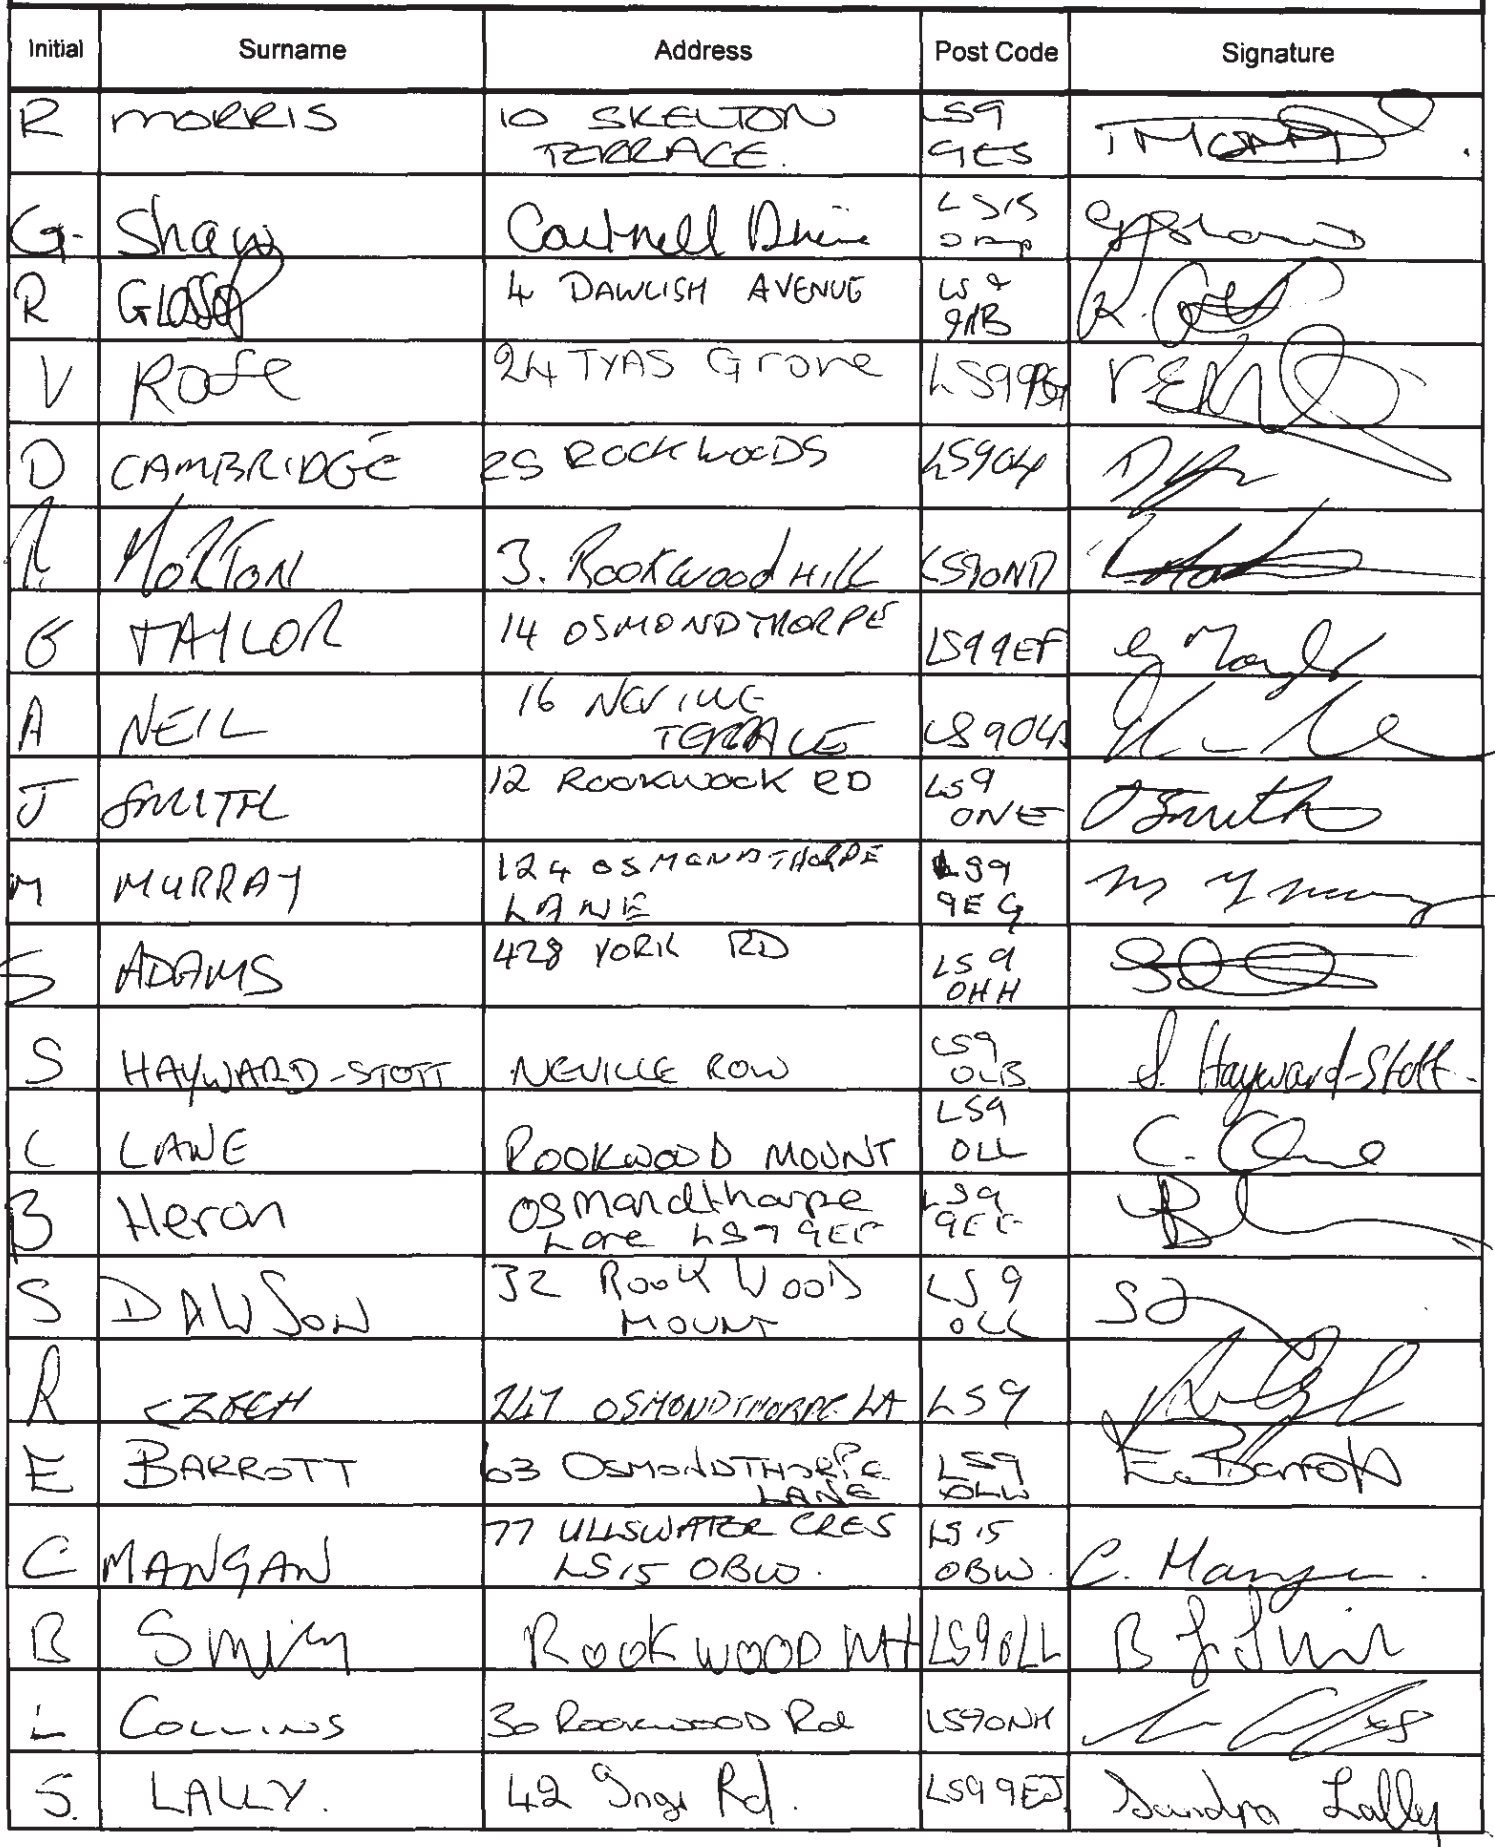 Initial Surname Address Post Code Signature
R MORRIS 10 SKELTON TERRACE. LS9 9ES
G. Shaw Drive LS15
R Glossop 4 DAWLISH AVENUE LS9 R.
V Rose 24 TYAS Grove LS9
D CAMBRIDGE 25 ROCKWOODS
MORTON 3. Rookwood HILL LS9 0ND
G TAYLOR 14 OSMONDTHORPE LS9 9EF
A NEIL 16 NEVILLE TERRACE LS9
J SMITH 12 ROOKWOOK RD LS9 0NE J Smith
M MURRAY 124 OSMONDTHORPE LANE LS9 9EG M
S ADAMS 428 YORK RD LS9 0HH
S HAYWARD-STOTT NEVILLE ROW LS9 0LB S. Hayward-Stott.
C LANE ROOKWOOD MOUNT LS9 0LL C.
B Heron Osmandthorpe Lane LS9 9EF LS9 9EF
S DAWSON 32 ROOKWOOD MOUNT LS9 0LL SD
R CZECH 247 OSMONDTHORPE LA LS9
E BARROTT 63 OSMONDTHORPE LANE LS9 0LW E. Barrott
C MANGAN 77 ULLSWATER CRES LS15 0BW. LS15 0BW. C. Mangan.
B ROOKWOOD Mt LS9 0LL B
L COLLINS 30 ROOKWOOD Rd LS9 0NH
S. LALLY. 42 Rd. LS9 9EJ Sandra Lally